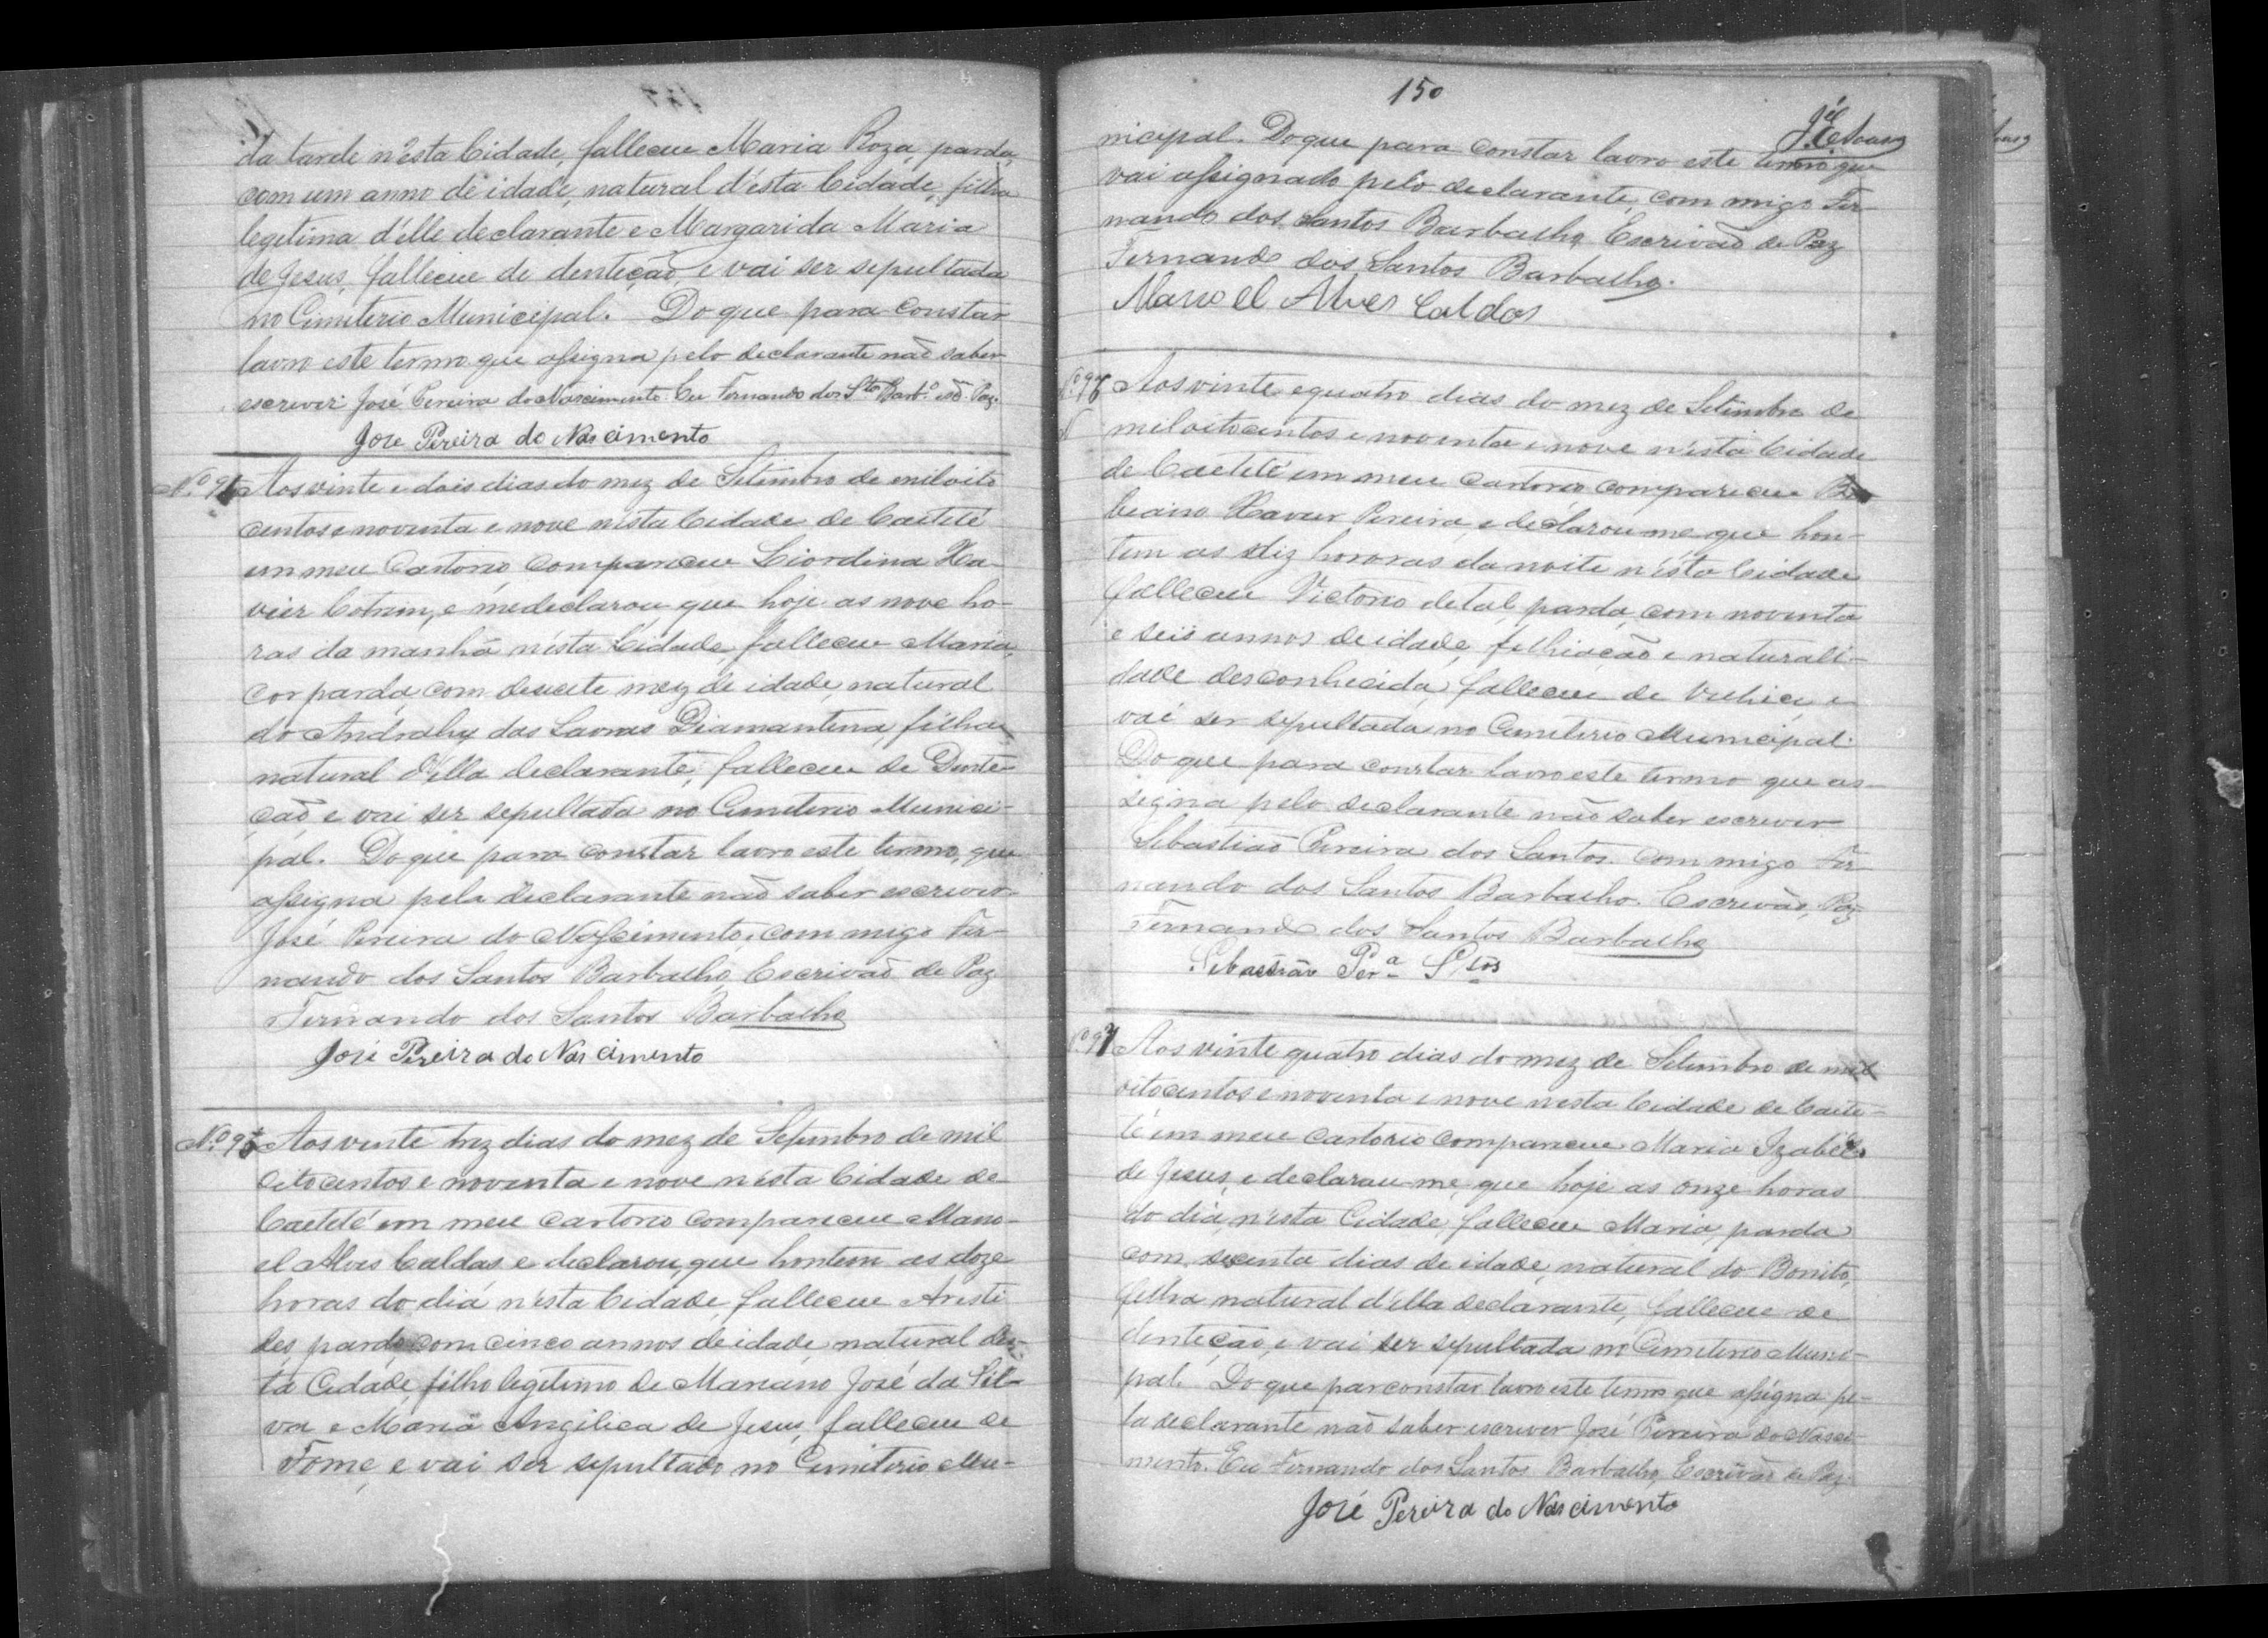 da tarde n'esta Cidade, falleceu Maria Roza, parda,
com um anno de idade, natural d'ésta Cidade, filha
legitima d'élle declarante e Margarida Maria
de Jesus, falleceu de denteção, e vai ser sepultada
no Cimiterio Municipal. Do que para constar
lavro este termo que assigna pelo declarante não saber
escrever José Pereira do Nascimento. Eu Fernando dos Stos Barb.o esc. Paz.
José Pereira do Nascimento
Aos vinte e dois dias do mez de Setimbro de mil oito
centos e noventa e nove nésta Cidade de Caeteté
em meu Cartorio compareceu Liordina Xa-
vier Cotrim, e me declarou que hoje as nove ho-
ras da manhã nésta Cidade, falleceu Maria,
cor parda, com desecete mez de idade, natural
do Andrahy das Lavras Diamantina, filha
natural d'ella declarante, falleceu de Dente-
ção e vai ser sepultada no Cimiterio Munici-
pal. Do que para constar lavro este termo, que
assigna pela declarante não saber escrever
José Pereira do Nascimento, com migo Fer-
nando dos Santos Barbalho, Escrivão de Paz
Fernando dos Santos Barbalho
José Pereira do Nascimento
Aos vinte trez dias do mez de Setembro de mil
oito centos e noventa e nove nésta Cidade de
Caeteté em meu Cartorio compareceu Mano-
el Alves Caldas e declarou, que hontem as doze
horas do dia n'esta Cidade, falleceu Aristi
des pardo com cinco annos de idade, natural des-
ta Cidade, filho legitimo de Mariano José da Sil-
va e Maria Angilica de Jesus, falleceu de
Fome, e vai ser sepultado no Cimiterio Mu-
150
nicipal. Do que para constar lavro este termo que
vai assignado pelo declarante, com migo Fer-
nando dos Santos Barbalho Escrivão de Paz
Fernando dos Santos Barbalho.
Manoel Alves Caldas
Aos vinte e quatro dias do mez de Setimbro de
mil oito centos e noventa e nove n'ésta Cidade
de Caeteté em meu Cartorio compareceu
Xavier Pereira, e declarou me que hon-
tem as diz hororas da noite n'ésta Cidade
falleceu Victorio de tal, parda, com noventa
e seis annos de idade, filhiação e naturali-
dade desconhecida, falleceu de velhice e
vai ser sepultada no Cimiterio Municipal.
Do que para constar lavro este termo que as-
signa pelo declarante não saber escrever
Sebastião Pereira dos Santos. com migo Fer
nando dos Santos Barbalho. Escrivão, Paz
Fernando dos Santos Barbalho
Sebastião Per.a Stos
Aos vinte quatro dias do mez de Setimbro de mil
oito centos e noventa e nove nésta Cidade de Caete-
té em meu cartorio compareceu Maria Izabel
de Jesus, e declarou-me, que hoje as onze horas
do dia, n'ésta Cidade, falleceu Maria, parda
com secenta dias de idade, natural do Bonito,
filha natural d'élla declarante, falleceu de
denteção, e vai ser sepultada no Cimiterio Muni-
pal. Do que par constar lavro este termo que assigna pe-
la declarante não saber escrever José Pereira do Nasci-
mento. Eu Fernando dos Santos Barbalho, Escrivão de Paz.
José Pereira do Nascimento